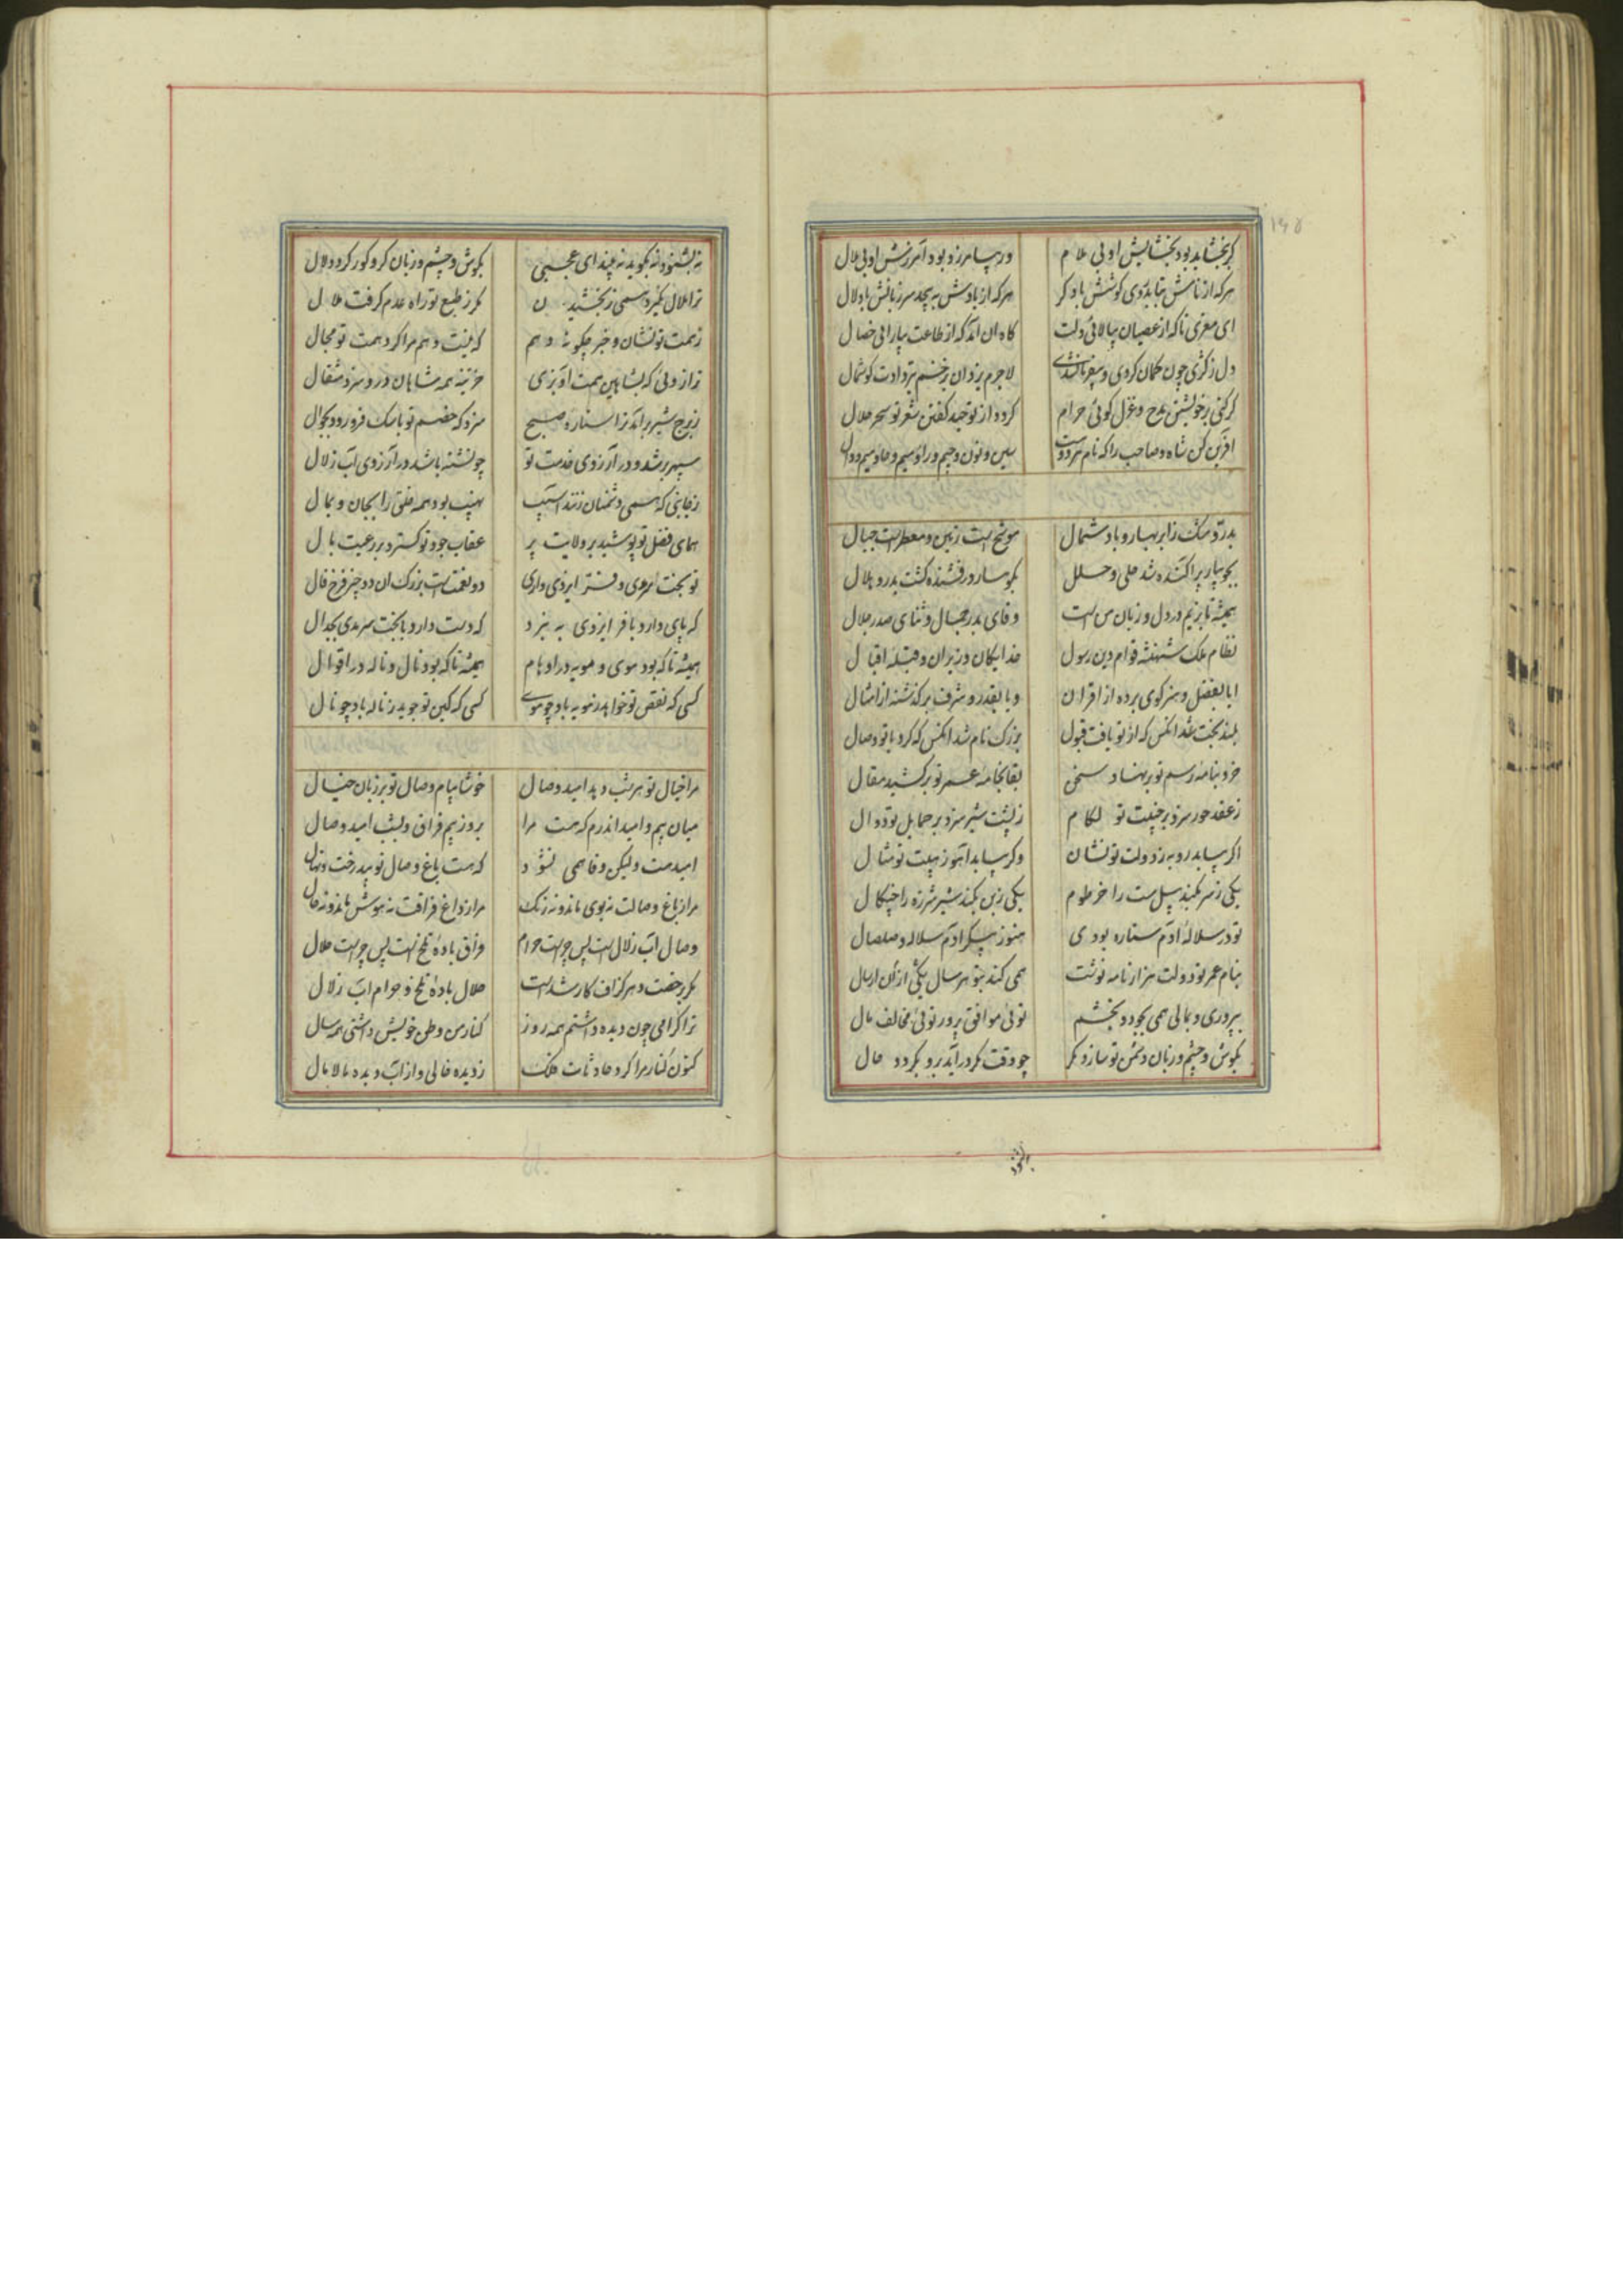 گر بخشاید بود بخشایش او بی ملام
ور بیامرزد بود آمرزش او بی ملال
هرکه از نامش بتابد روی گوشش باد کر
هرکه از یادش بپیچد سر زبانش باد لال
ای معزی تا که از عصیان بیالائی دلت
گاه آن آمد که از طاعت بیارائی خصال
دل ز کژی چون کمان کردی و
لاجرم یزدان بزخم تیر دادت گوشمال
گر کنی بر خویشتن مدح و غزل گوئی حرام
گردد از توحید گفتن شعر تو سحر حلال
آفرین کن شاه و صاحب را که نام هر دو هست
سین و نون و جیم و را و میم و حا و میم و دال
بدر و مشک ز ابر بهار و باد شمال
موشح است زمین و معطر است جبال
بجویبار پراکنده شد حلی و حلل
بکوهسار درفشنده گشت بدر و هلال
همیشه تا بزیم در دل و زبان من است
وفای بدر جمال و ثنای صدر جلال
نظام ملک شهنشه قوام دین رسول
خدایگان وزیران و قبله اقبال
ایا بفضل و هنر گوی برده از اقران
و یا بقدر و شرف برگذشته از امثال
بلند بخت شد آنکس که از تو یافت قبول
بزرگ نام شد آنکس که کرد با تو وصال
خرد بنامه رسم تو بر نهاد سخن
بقا بخامه عمر تو برکشید مقال
ز عقد حور سزد بر جنیبت تو لگام
ز پشت شیر سزد بر حمایل تو دوال
اگر بیابد روبه ز دولت تو نشان
وگر بیابد آهو ز هیبت تو مثال
یکی ز سر بکند پیل مست را خرطوم
یکی ز بن بکند شیر شرزه را چنگال
تو در سلاله آدم ستاره بودی
هنوز پیکر آدم سلاله و صلصال
بنام عمر تو دولت هزار نامه نوشت
همی کند بتو هر سال یکی از آن ارسال
بپروری و بمالی همی بجود و بخشم
توئی موافق پرور توئی مخالف مال
بگوش و چشم و زبان دشمن تو سازد مکر
چو وقت مکر درآید برو بگردد حال
بشنود
نه بشنود نه بگوید نه بیند ای عجبی
بگوش و چشم و زبان کر و کور گردد و لال
ترا ملال نگیرد همی ز بخشیدن
مگر ز طبع تو راه عدم گرفت ملال
ز همت تو نشان و خبر چگونه دهم
که نیست وهم مرا گرد همت تو مجال
ترازوئی که بشاهین همت آویزی
خزینه همه شاهان درو سزد مثقال
ز برج شیر برآید ترا ستاره صبح
سزد که خصم تو باسک فرو رود بجوال
سپهر بر شده در آرزوی خدمت تو
چو تشنه باشد در آرزوی آب زلال
ز جانبی که همی دشمنان زنند آسیب
نهیب بود همه خلق را بجان و بمال
همای فضل تو پوشید بر ولایت پر
عقاب جود تو گسترد بر رعیت بال
تو بخت سرمدی و فر ایزدی داری
دو نعمت است بزرگ آن دو چیز فرخ فال
که پای دارد با فر ایزدی به نبرد
که دست دارد با بخت سرمدی بجدال
همیشه تا که بود موی و مویه در اوهام
همیشه تا که بود نال و ناله در اقوال
کسی که نقص تو خواهد ز مویه باد چو موی
کسی که کین تو جوید ز ناله باد چو نال
مرا خیال تو هر شب دهد امید وصال
خوشا پیام وصال تو بر زبان خیال
میان بیم و امید اندرم که هست مرا
بروز بیم فراق و بشب امید وصال
امید هست ولیکن وفا همی نشود
که هست باغ وصال تو بی درخت و نهال
مرا ز باغ وصالت نه بوی ماند و نه رنگ
مرا ز داغ فراقت نه هوش ماند و نه حال
وصال آب زلال است پس چراست حرام
فراق باده تلخ است پس چراست حلال
مگر برخصت و هر گز اف کار شد است
حلال باده تلخ و حرام آب زلال
ترا گرامی چون دیده داشتم همه روز
کنار من وطن خویش داشتی همه سال
کنون کنار مرا کرد حادثات فلک
ز دیده خالی و از آب دیده مالامال